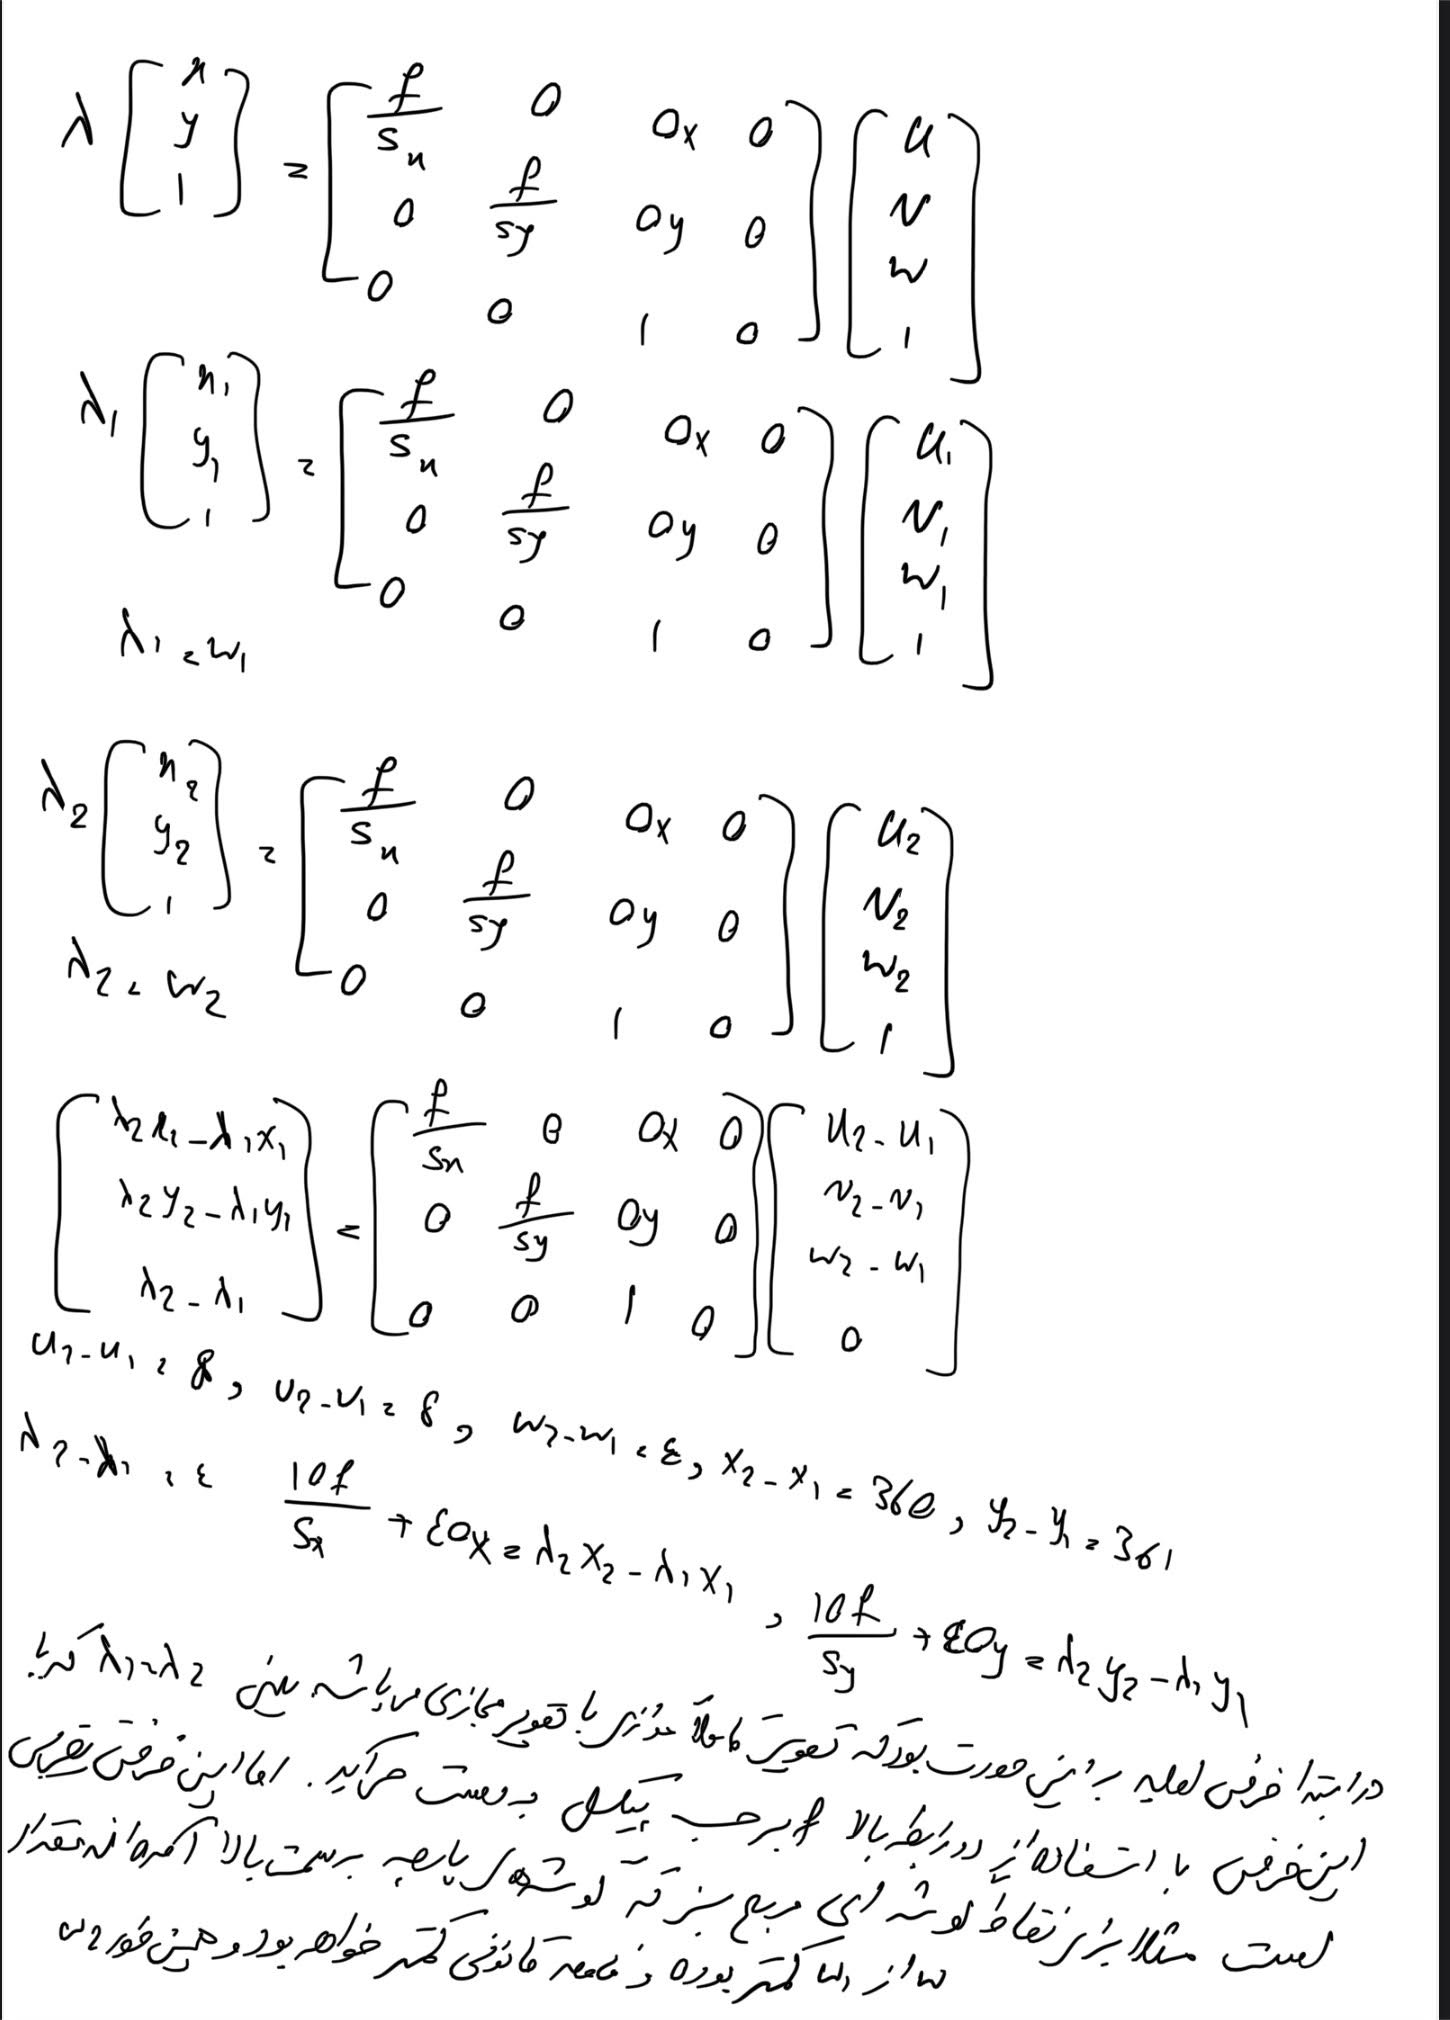 λ [x y 1] = [f/sx 0 Ox 0; 0 f/sy Oy 0; 0 0 1 0] [u v w 1]
λ1 [x1 y1 1] = [f/sx 0 Ox 0; 0 f/sy Oy 0; 0 0 1 0] [u1 v1 w1 1]
λ1 = w1
λ2 [x2 y2 1] = [f/sx 0 Ox 0; 0 f/sy Oy 0; 0 0 1 0] [u2 v2 w2 1]
λ2 = w2
[λ2x2 - λ1x1; λ2y2 - λ1y1; λ2 - λ1] = [f/sx 0 Ox 0; 0 f/sy Oy 0; 0 0 1 0] [u2 - u1; v2 - v1; w2 - w1; 0]
u2 - u1 = 8, v2 - v1 = 8, w2 - w1 = ε, x2 - x1 = 360, y2 - y1 = 361
λ2 - λ1 = ε 10f/sx + εOx = λ2x2 - λ1x1, 10f/sy + εOy = λ2y2 - λ1y1
در ابتدا فرض اولیه به این صورت بود که تصویر کاملا موازی با تصویر مجازی می باشد. یعنی λ1 = λ2 که با
این فرض با استفاده از دو رابطه بالا f بر حسب پیکسل به دست می آید. اما این فرض تقریبی
است مثلا برای نقاط گوشه ای مربع سبز که گوشه پارچه به سمت بالا آمده اند مقدار
w2 از w1 کمتر بوده و فاصله کانونی کمتر خواهد بود و همین طور